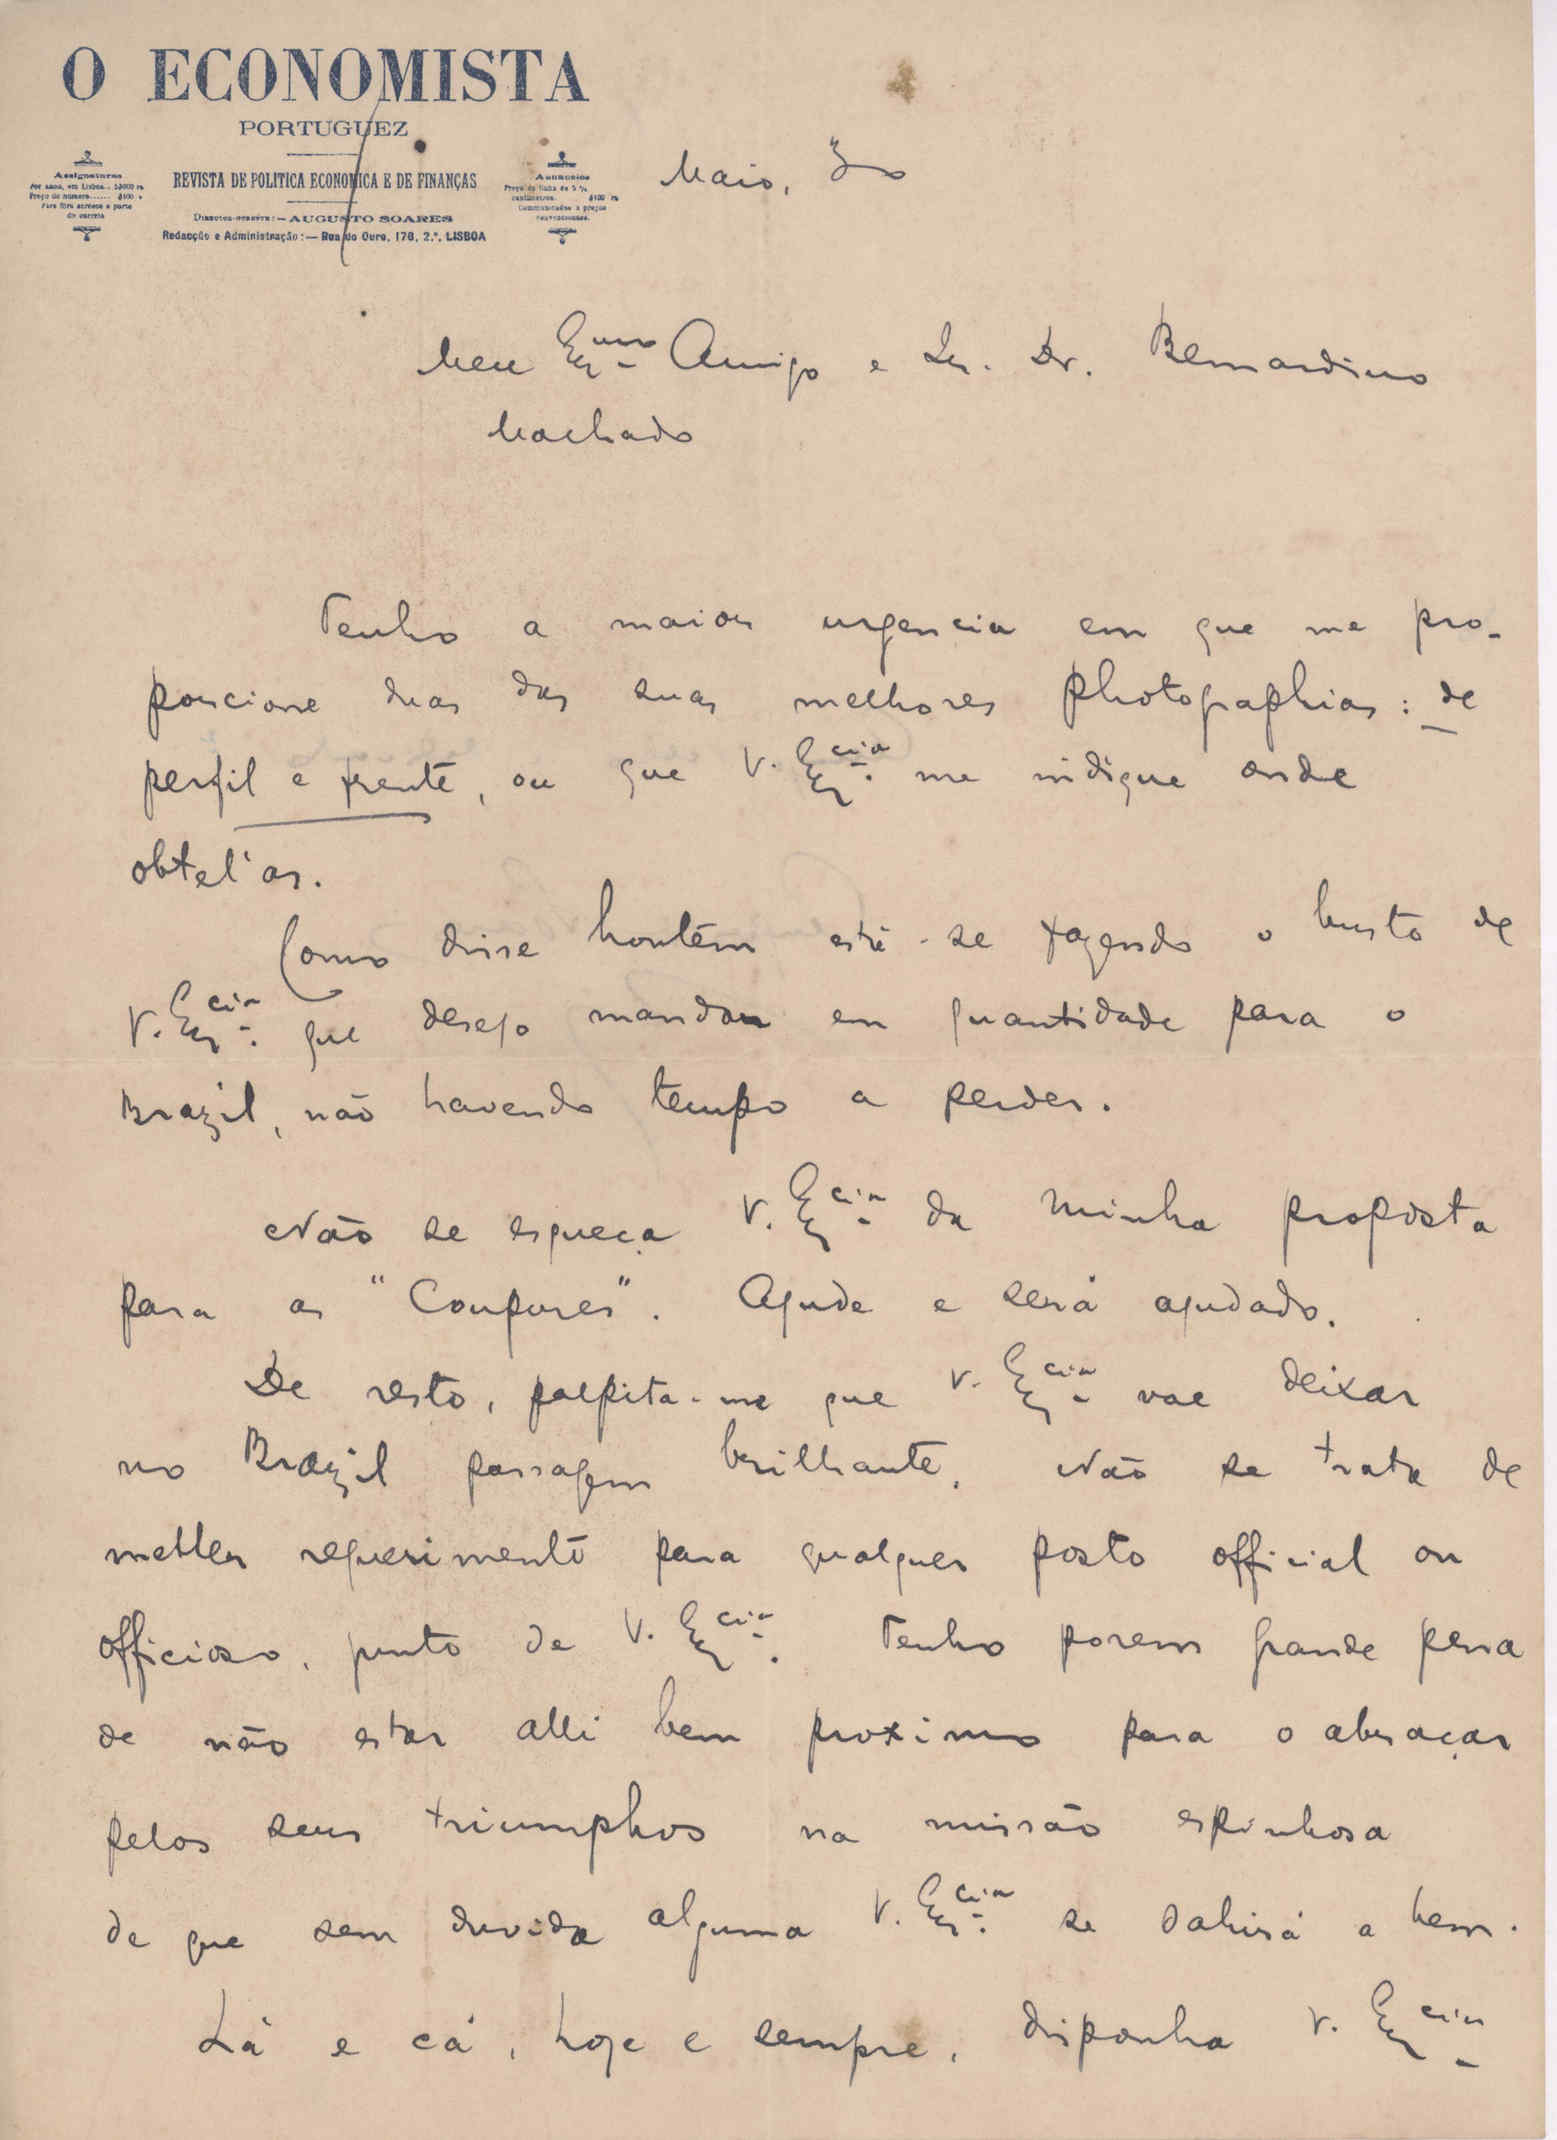 O ECONOMISTA
PORTUGUEZ
REVISTA DE POLITICA ECONOMICA E DE FINANÇAS
Director-gerente:—AUGUSTO SOARES
Redacção e Administração:—Rua do Ouro, 178, 2.º, LISBOA
Assignaturas
Por anno, em Lisboa..
Preço do numero...... $100
Para fóra accresce o porte
do correio
Annuncios
Preço da linha de
centimetros. $100 rs
Communicados a preços
convencionaes.
Maio, 30
Meu Exmo Amigo e Sr. Dr. Bernardino
Machado
Tenho a maior urgencia em que me pro-
porcione duas das suas melhores photographias: de
perfil e frente, ou que V. Excia. me indique onde
obtel'as.
Como disse hontem está-se fazendo o busto de
V. Excia. que desejo mandar em quantidade para o
Brazil, não havendo tempo a perder.
Não se esqueça V. Excia da minha proposta
para as "Coupures". Ajude e será ajudado.
De resto, palpita-me que V. Excia vae deixar
no Brazil passagem brilhante. Não se trata de
metter requerimento para qualquer posto official ou
officioso, junto de V. Excia. Tenho porem grande pena
de não estar alli bem proximo para o abraçar
pelos seus triumphos na missão espinhosa
de que sem duvida alguma V. Excia. se sahirá a bem.
Lá e cá, hoje e sempre, disponha V. Excia